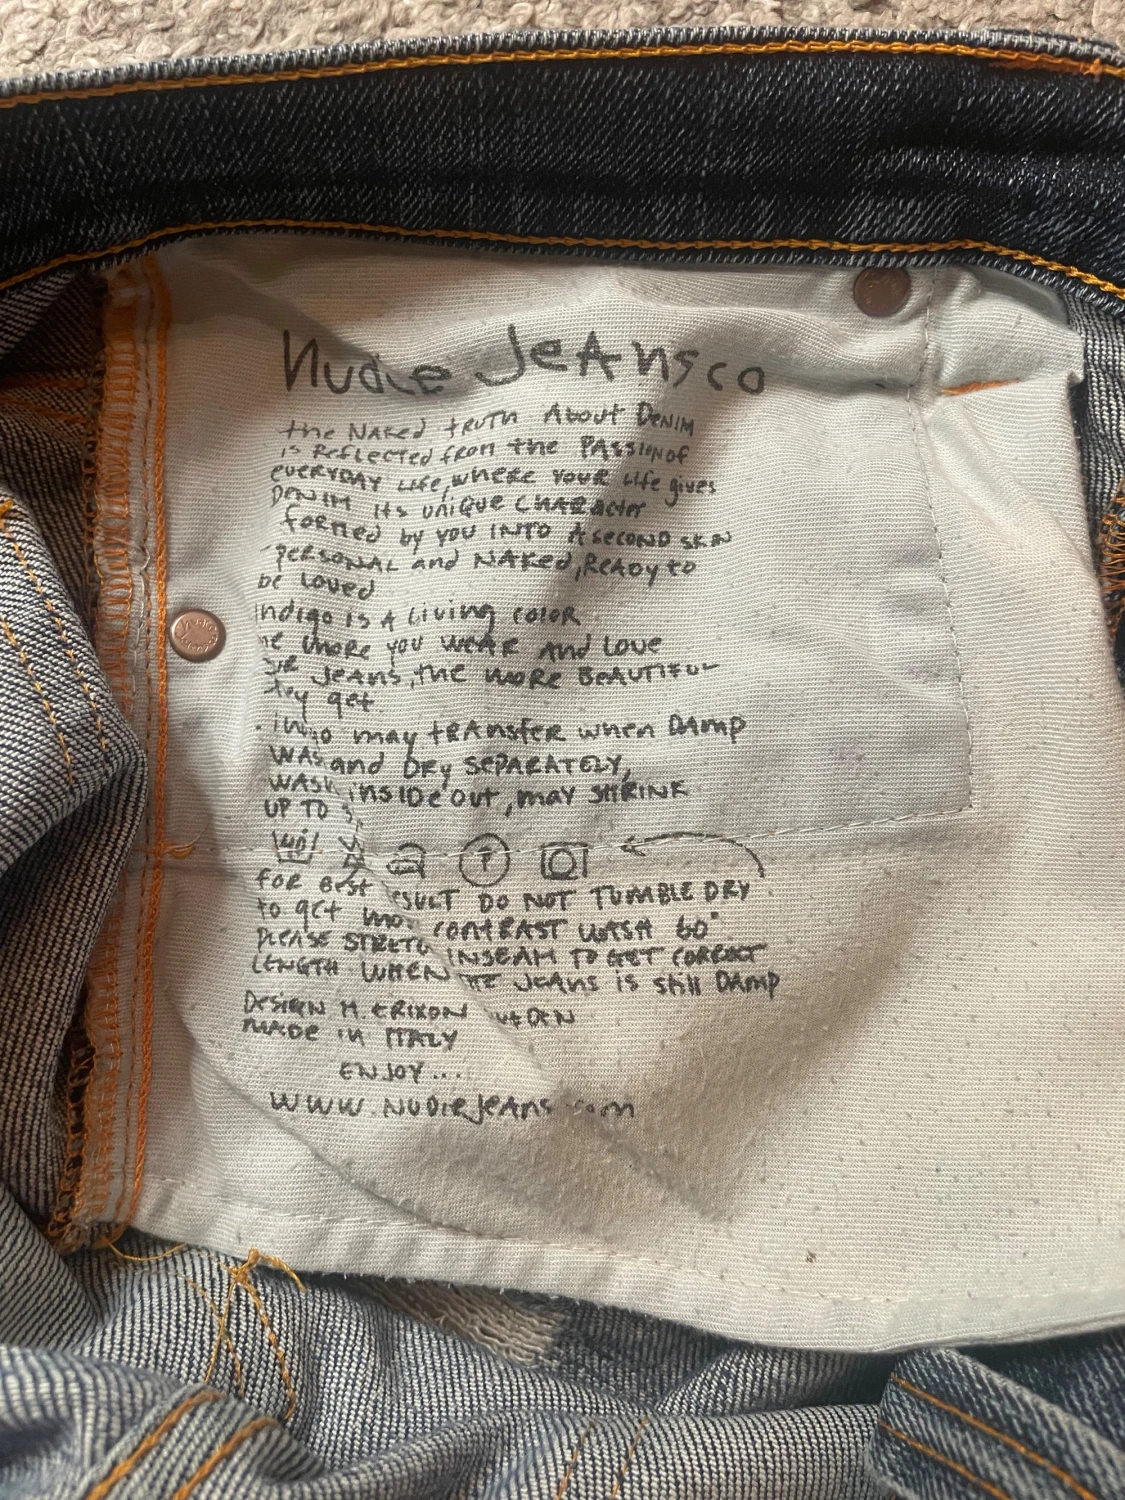 Nudie Jeans co
the Naked truth About Denim
is Reflected from the passion of
everyday life, where your life gives
Denim its unique character
formed by you into a second skin
-personal and naked, ready to
be loved
Indigo is a living color
he more you wear and love
ur jeans, the more beautiful
they get.
may transfer when damp
and dry separately,
inside out, may shrink
up to
P
for best result do not tumble dry
to get more contrast wash 60°
please stretch inseam to get correct
length when the jeans is still damp
Design M. Erixon
made in Italy
ENJOY...
www.nudiejeans.com